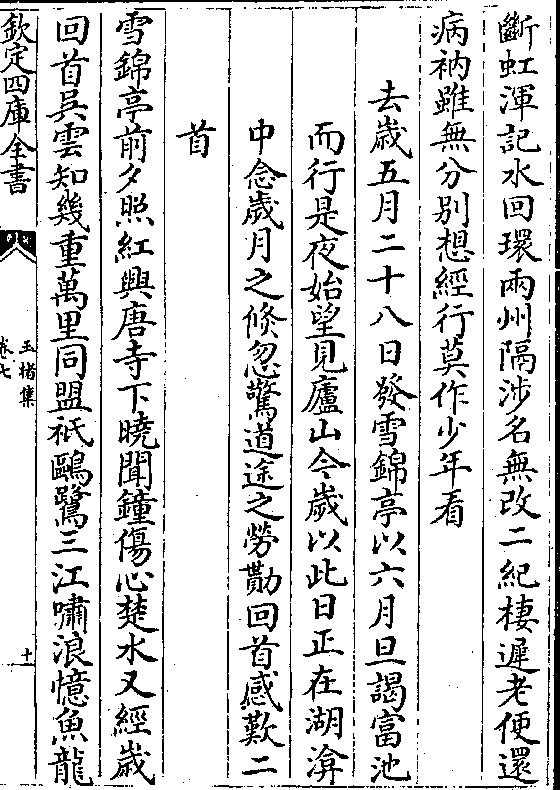 斷虹渾記水回環兩州隔涉名無改二紀棲遲老便還
病衲雖無分別想經行莫作少年看
去歲五月二十八日發雪錦亭以六月旦謁富池
而行是夜始望見廬山今歲以此日正在湖漭
中念歲月之倏忽驚道途之勞勩回首感歎二
首
雪錦亭前夕照紅興唐寺下曉聞鐘傷心楚水又經歲
回首吳雲知幾重萬里同盟祇鷗鷺三江嘯浪憶魚龍
欽定四庫全書
玉楮集
卷七
十